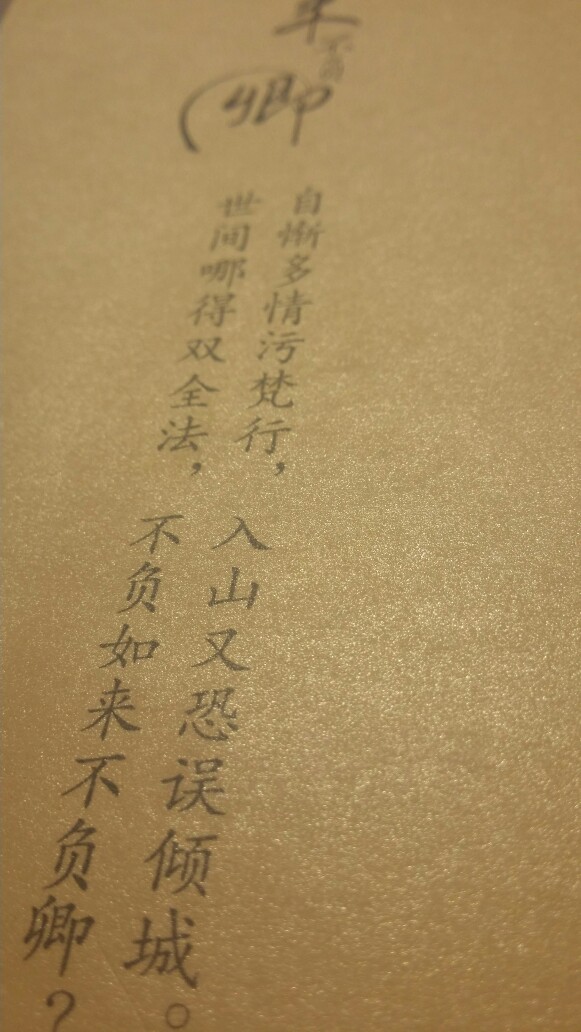 不负
卿
自惭多情污梵行，
入山又恐误倾城。
世间哪得双全法，
不负如来不负卿？